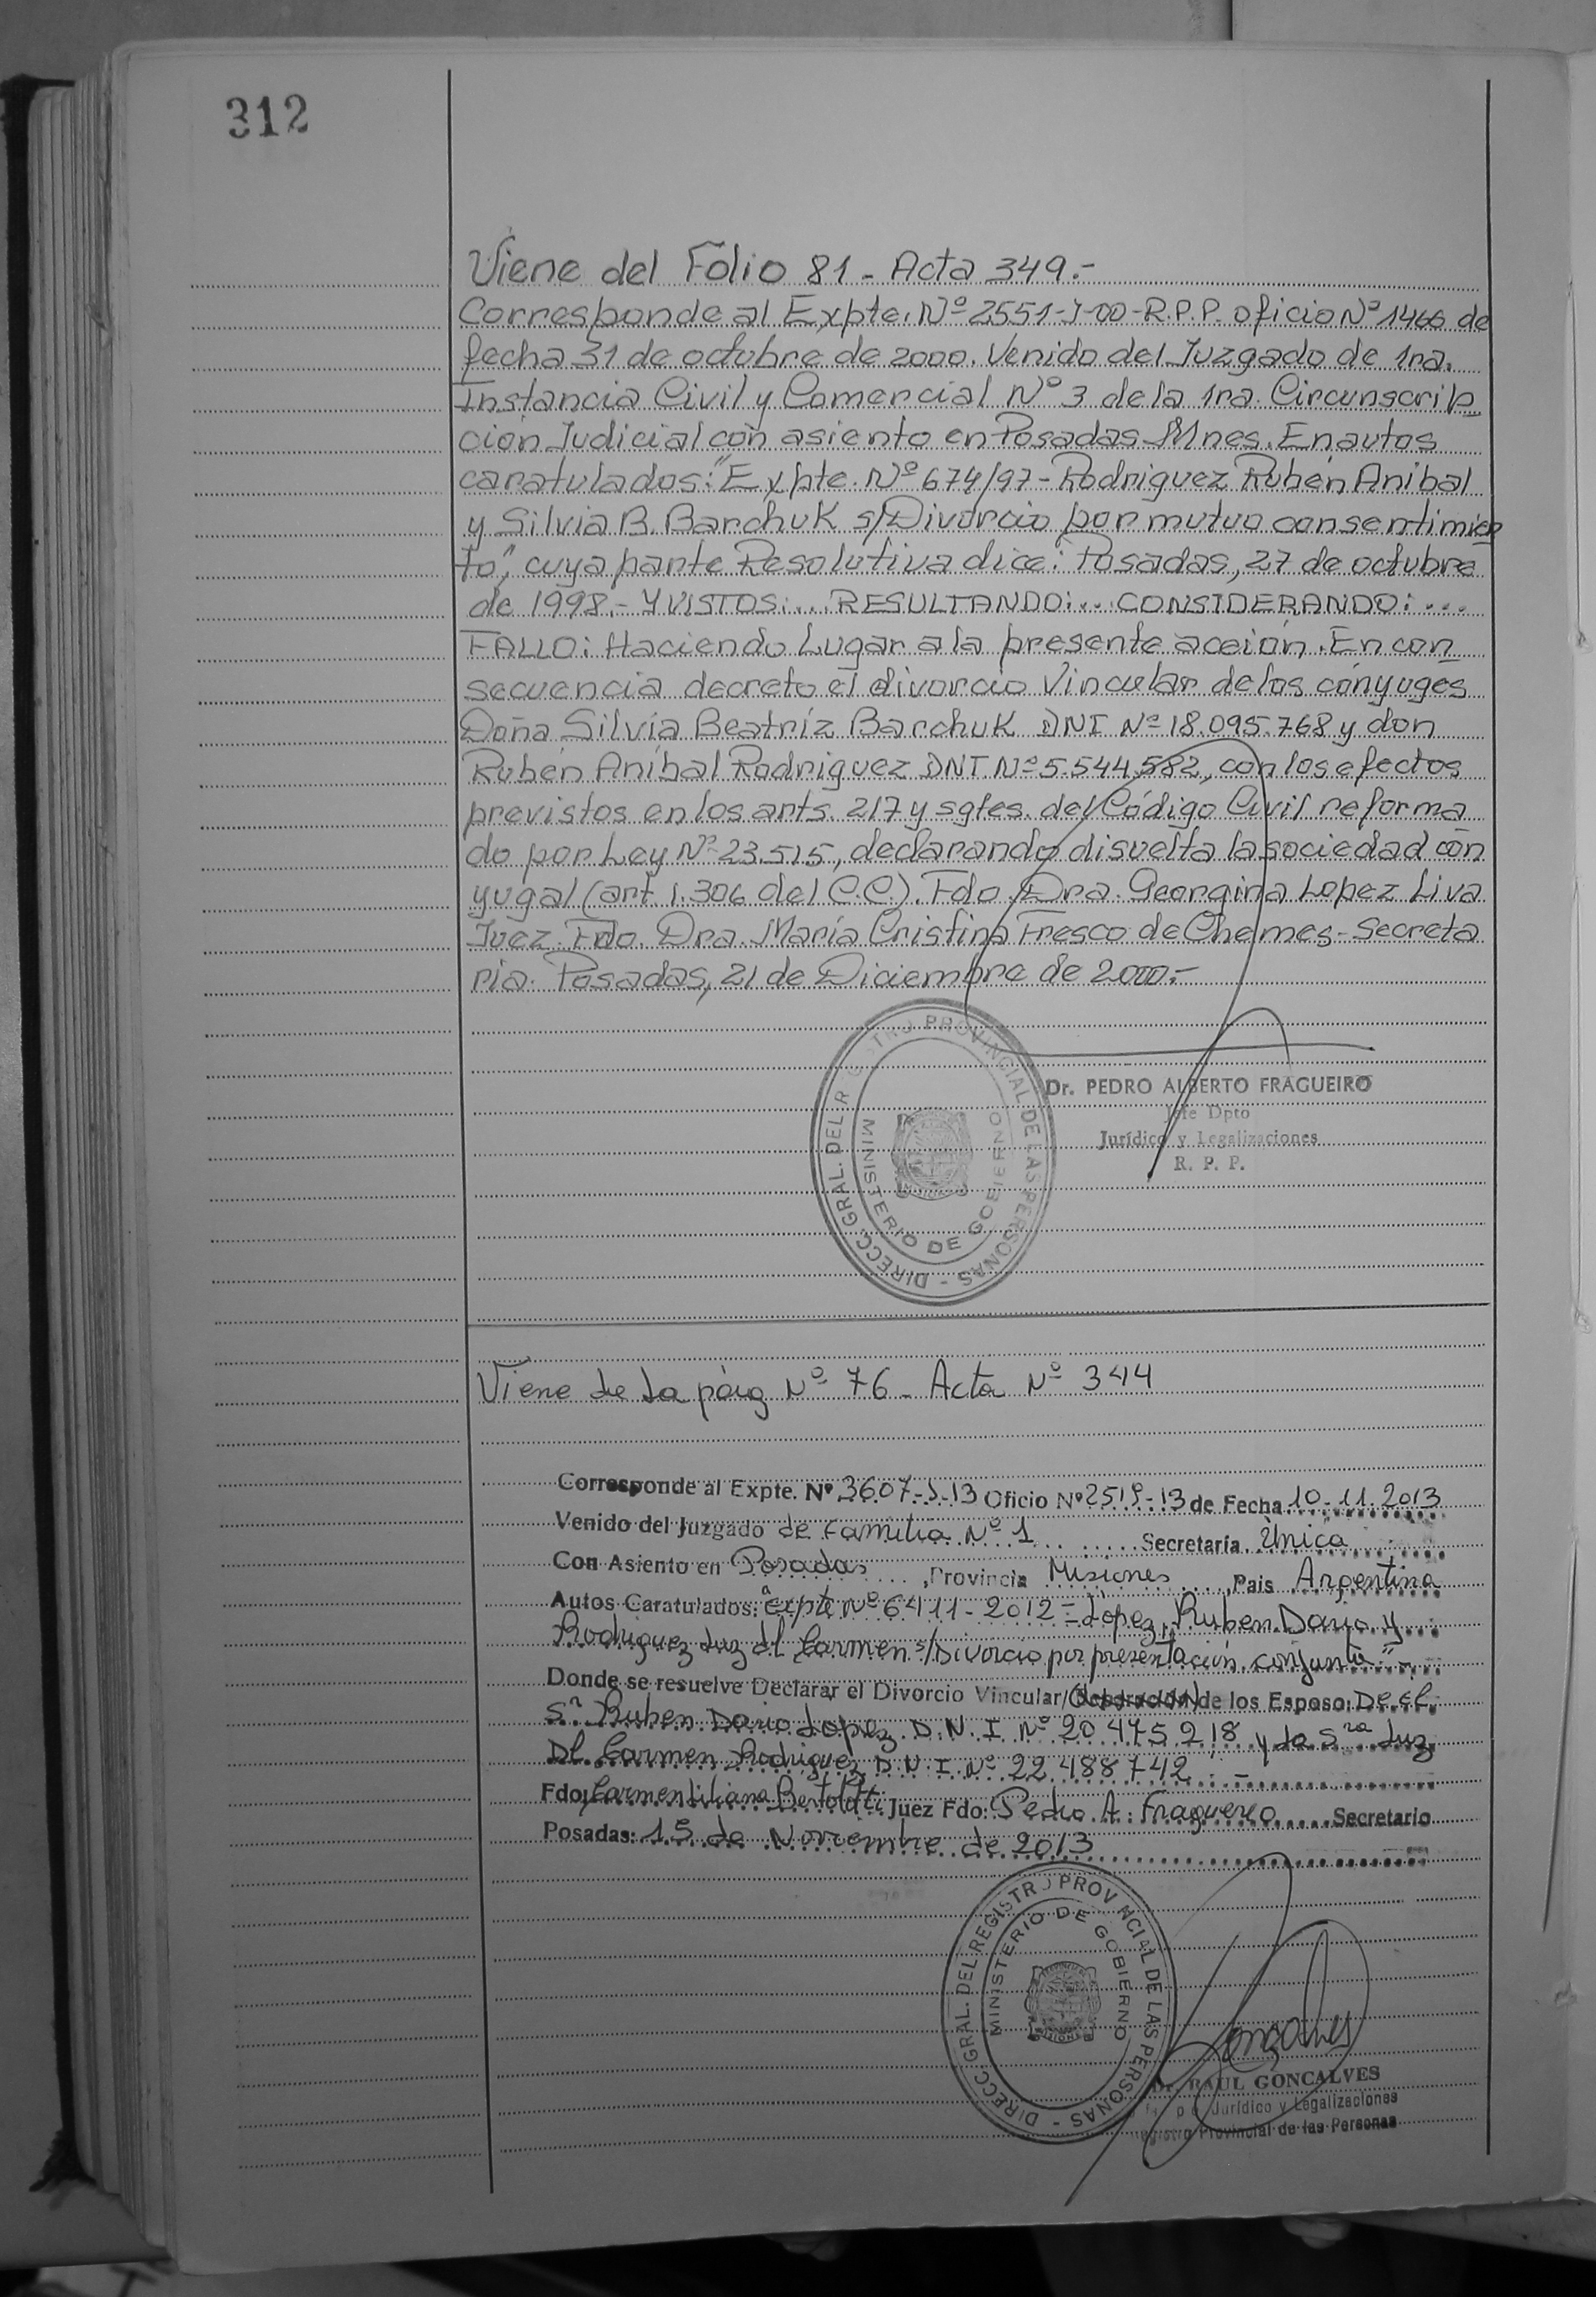 312
Viene del Folio 81 - Acta 349.-
Corresponde al Expte. Nº 2551-J-00-R.P.P. oficio Nº 1466 de
fecha 31 de octubre de 2000. Venido del Juzgado de 1ra.
Instancia Civil y Comercial Nº 3 de la 1ra. Circunscrip
ción Judicial con asiento en Posadas Mnes. En autos
caratulados: "Expte. Nº 674/97 - Rodriguez Rubén Anibal
y Silvia B. Barchuk s/Divorcio por mutuo consentimien
to", cuya parte Resolutiva dice: Posadas, 27 de octubre
de 1998.- Y VISTOS:... RESULTANDO:... CONSIDERANDO:...
FALLO: Haciendo Lugar a la presente acción. En con
secuencia decreto el divorcio Vincular de los cónyuges
Doña Silvia Beatríz Barchuk DNI Nº 18.095.768 y don
Rubén Aníbal Rodriguez DNI Nº 5.544.582, con los efectos
previstos en los arts. 217 y sgtes. del Código Civil reforma
do por Ley Nº 23.515, declarando disuelta la sociedad con
yugal (art. 1.306 del C.C.). Fdo. Dra. Georgina Lopez Liva
Juez. Fdo. Dra. María Cristina Fresco de Chelmes - Secreta
ria. Posadas, 21 de Diciembre de 2000.-
DIRECC. GRAL. DEL R GISTRO PROVINCIAL DE LAS PERSONAS -
MINISTERIO DE GOBIERNO
Dr. PEDRO ALBERTO FRAGUEIRO
Jefe Dpto
Jurídico y Legalizaciones
R. P. P.
Viene de la pág Nº 76 - Acta Nº 344
Corresponde al Expte. Nº 3607-J-13 Oficio Nº 2519-13 de Fecha 10-11-2013
Venido del Juzgado de Familia Nº 1 Secretaría Única
Con Asiento en Posadas, Provincia Misiones, Pais Argentina
Autos Caratulados: "Expte Nº 6411-2012 = Lopez, Ruben Dario y
Rodriguez Luz del Carmen s/Divorcio por presentación conjunta"-
Donde se resuelve Declarar el Divorcio Vincular/ de los Esposo: De el
Sr. Ruben Dario Lopez D.N.I Nº 20 475 218 y la Sra Luz
Del Carmen Rodriguez D.N.I. Nº 22.488 742 . -
Fdo: Carmen Liliana Juez Fdo: Pedro A. Fragueiro Secretario
Posadas: 15 de Noviembre de 2013
DIRECC. GRAL. DEL REGISTRO PROVINCIAL DE LAS PERSONAS -
MINISTERIO DE GOBIERNO
MISIONES
Dr. RAUL GONCALVES
Jurídico y Legalizaciones
Registro Provincial de las Personas